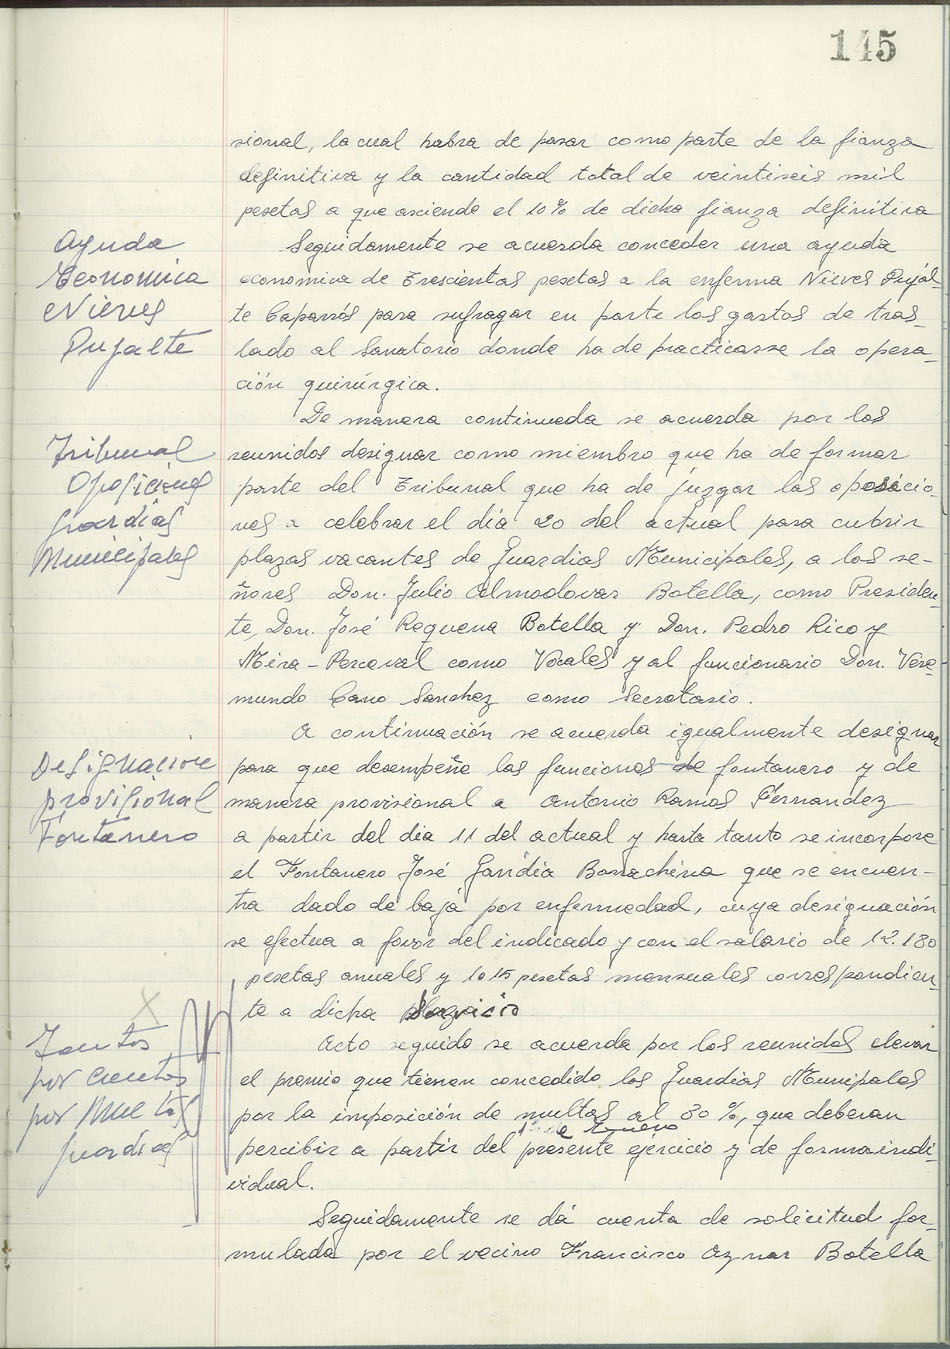 145
sional, la cual habra de pasar como parte de la fianza
definitiva y la cantidad total de veintiseis mil
pesetas a que asciende el 10% de dicha fianza definitiva
Ayuda
Economica
Nieves
Pujalte
Seguidamente se acuerda conceder una ayuda
economica de Trescientas pesetas a la enferma Nieves Pujal-
te Caparrós para sufragar en parte los gastos de tras-
lado al Sanatorio donde ha de practicarse la opera-
ción quirúrgica.
Tribunal
Oposiciones
Guardias
Municipales
De manera continuada se acuerda por los
reunidos designar como miembro que ha de formar
parte del Tribunal que ha de juzgar las oposicio-
nes a celebrar el día 20 del actual para cubrir
plazas vacantes de Guardias Municipales, a los se-
ñores Don. Julio Almodovar Botella, como Presiden-
te, Don. José Requena Botella y Don. Pedro Rico y
Mira-Perceval como Vocales y al funcionario Don. Vere-
mundo Cano Sanchez como Secretario.
Designacion
provisional
Fontanero
A continuación se acuerda igualmente designar
para que desempeñe las funciones de fontanero y de
manera provisional a Antonio Ramos Fernandez
a partir del dia 11 del actual y hasta tanto se incorpore
el Fontanero José Gandia Bonachina que se encuen-
tra dado de baja por enfermedad, cuya designación
se efectua a favor del indicado y con el salario de 12.180
pesetas anuales y 1015 pesetas mensuales correspondien-
te a dicha Servicio
Tantos
por cientos
por Multas
Guardias
Acto seguido se acuerda por los reunidos elevar
el premio que tienen concedido los Guardias Munipales
por la imposición de multas al 30%, que deberan
de Enero
percibir a partir del presente ejercicio y de forma indi-
vidual.
Seguidamente se dá cuenta de solicitud for-
mulada por el vecino Francisco Aznar Botella